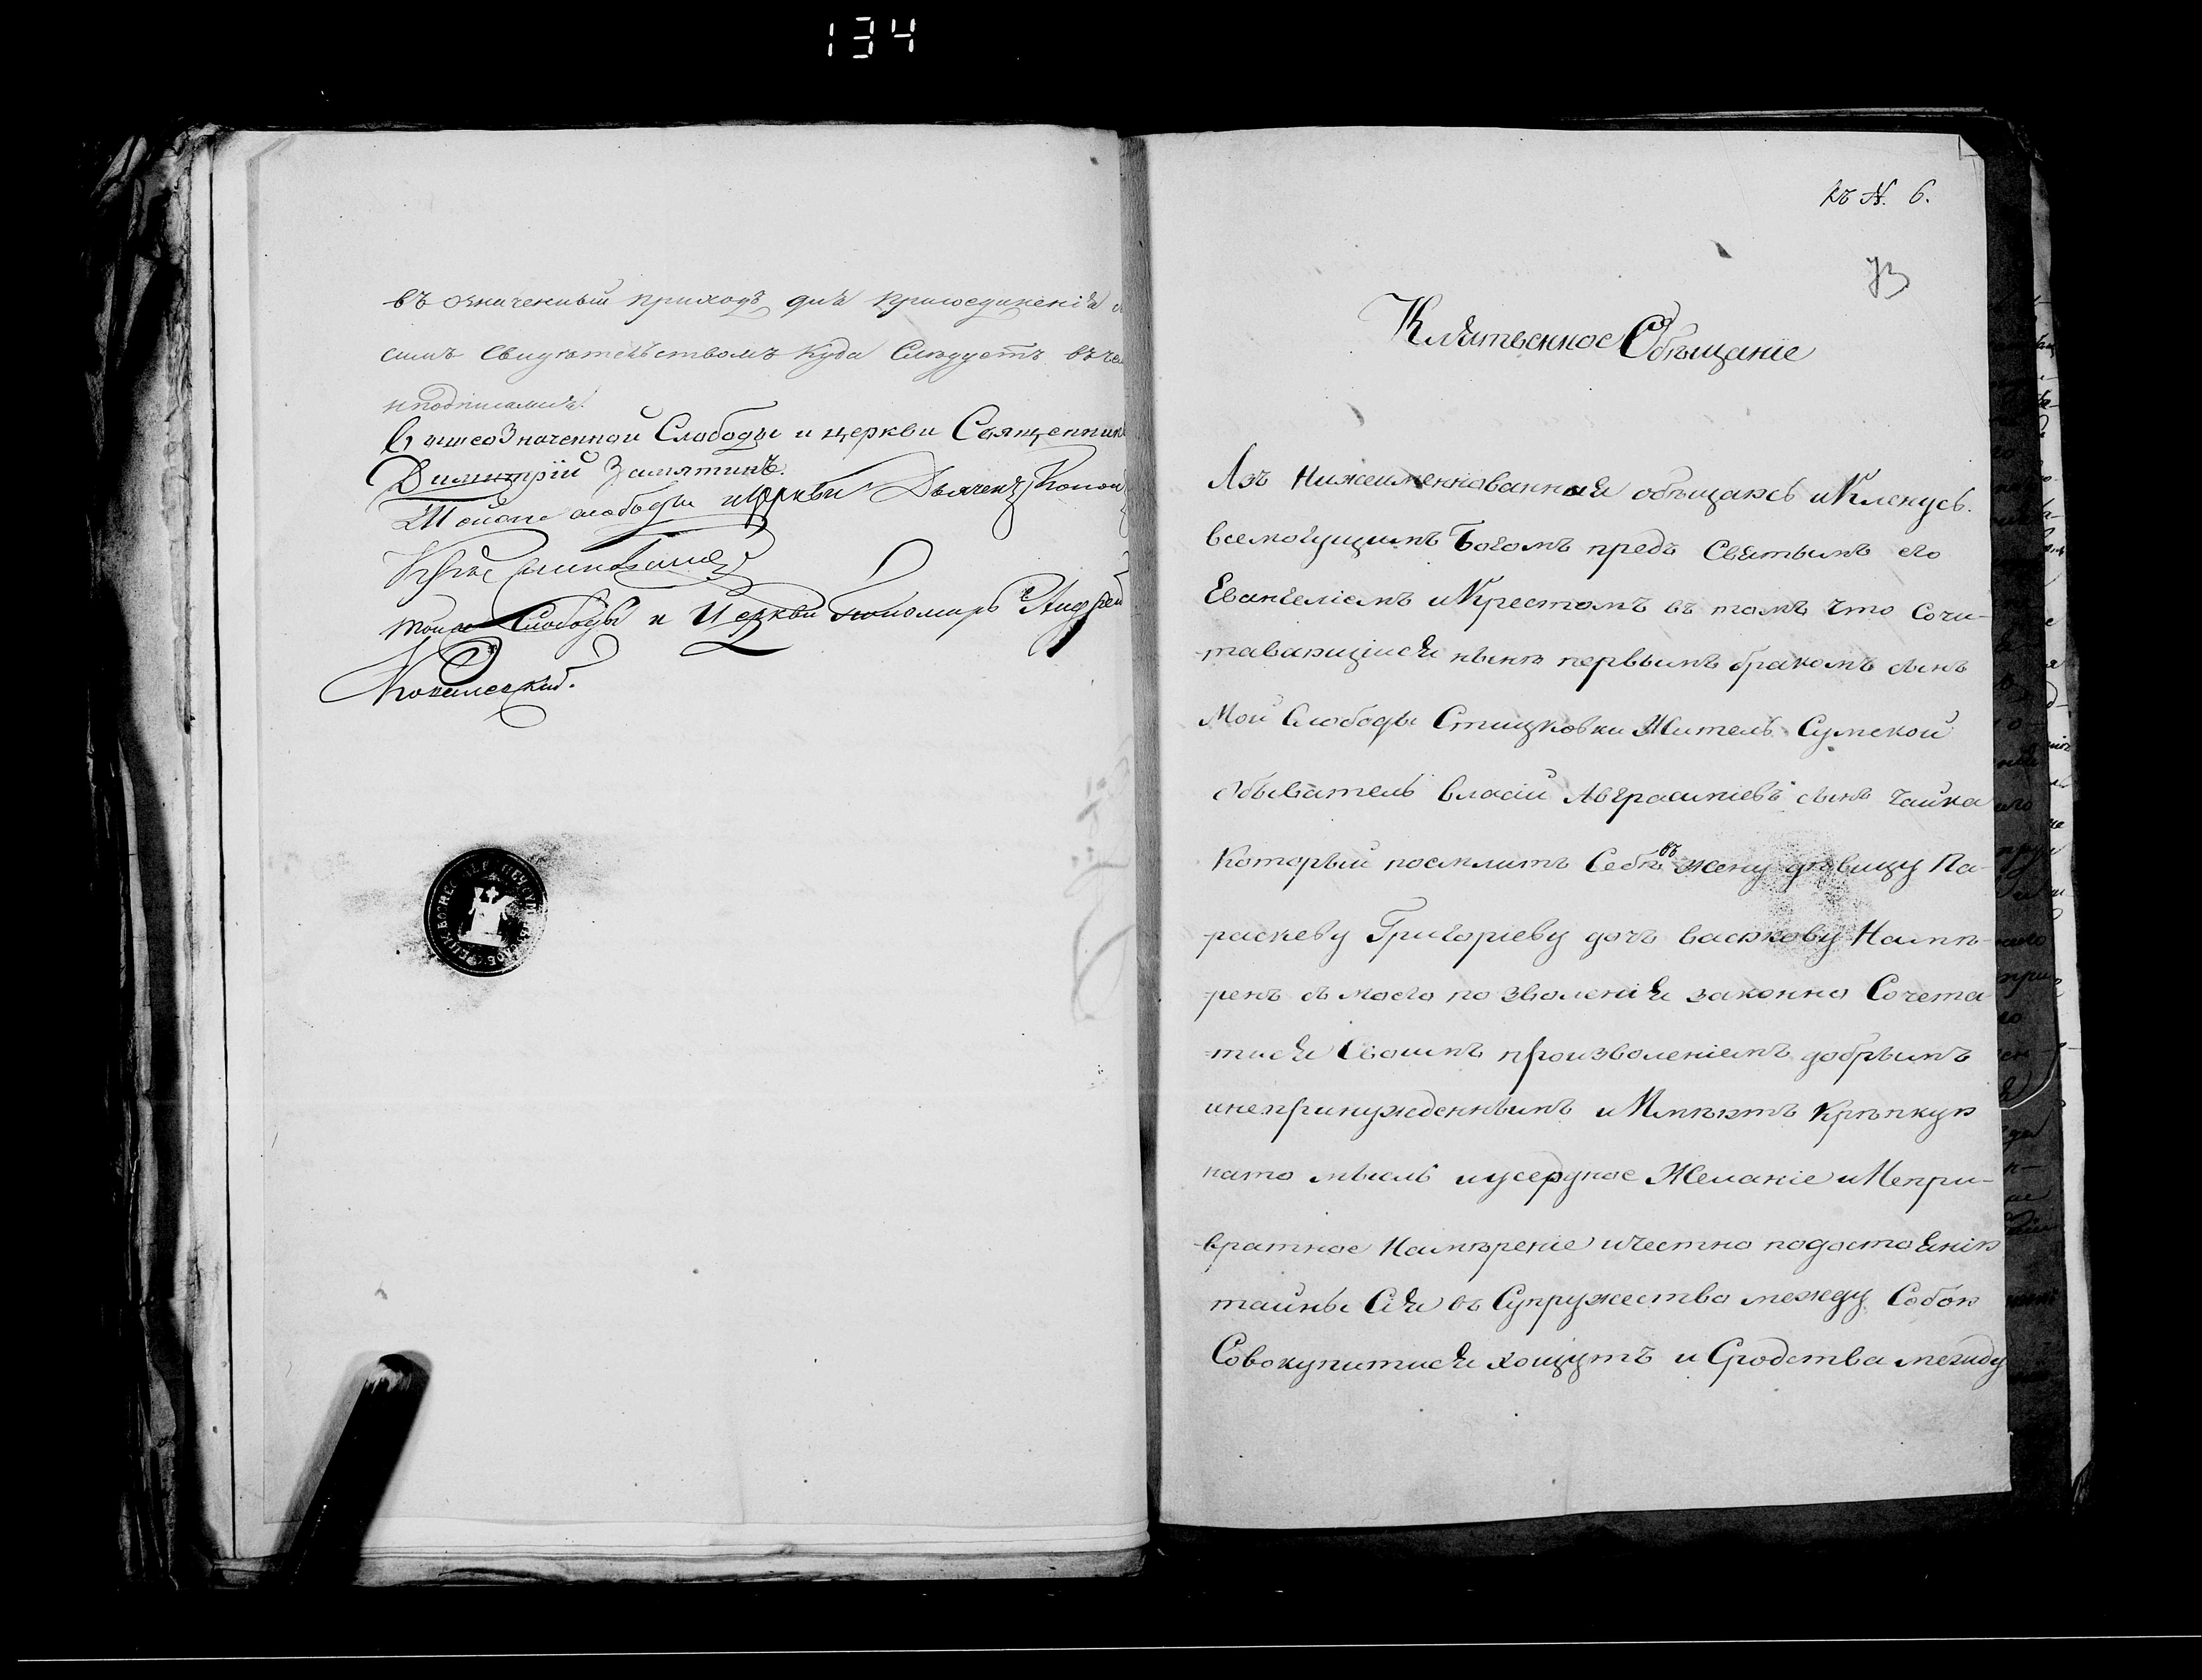 134
въ означенный приходъ для присоединенія
симъ Свидѣтельствомъ куда Слѣдуетъ въ
и подписались.
Вышеозначенной Слободы и церкви Священник
Димитрій Замятинъ.
Тойже слободы и Церкви Дьячекъ
тойже Слободы и Церкви Пономарь Андрей
Ковалевский.
къ N. 6.
73
Клятвенное Обѣщаніе
Азъ Нижеименнованный обѣщаюсь и Кленусь
всемогущимъ Богомъ предъ Святымъ его
Евангеліемъ и Крестомъ въ томъ что Сочи-
тавающійся нынѣ первымъ бракомъ сынъ
Мой Слободы Стицковки Житель Сумской
обыватель Власій Аврасиміевъ сынъ Чайка
Который поемлитъ Себѣ въ жену дѣвицу Па-
раскеву Григоріеву дочь Васюкову Намѣ-
ренъ съ моего позволенія законно Сочета
тися Своимъ произволеніемъ добрымъ
и непринужденнымъ и Имѣютъ Крѣпкую
на то мысль и усердное Желаніе и Непри-
вратное Намѣреніе и честно по достоянію
тайны Сія въ Супружество между Собою
Совокупитися хощутъ и Сродства между